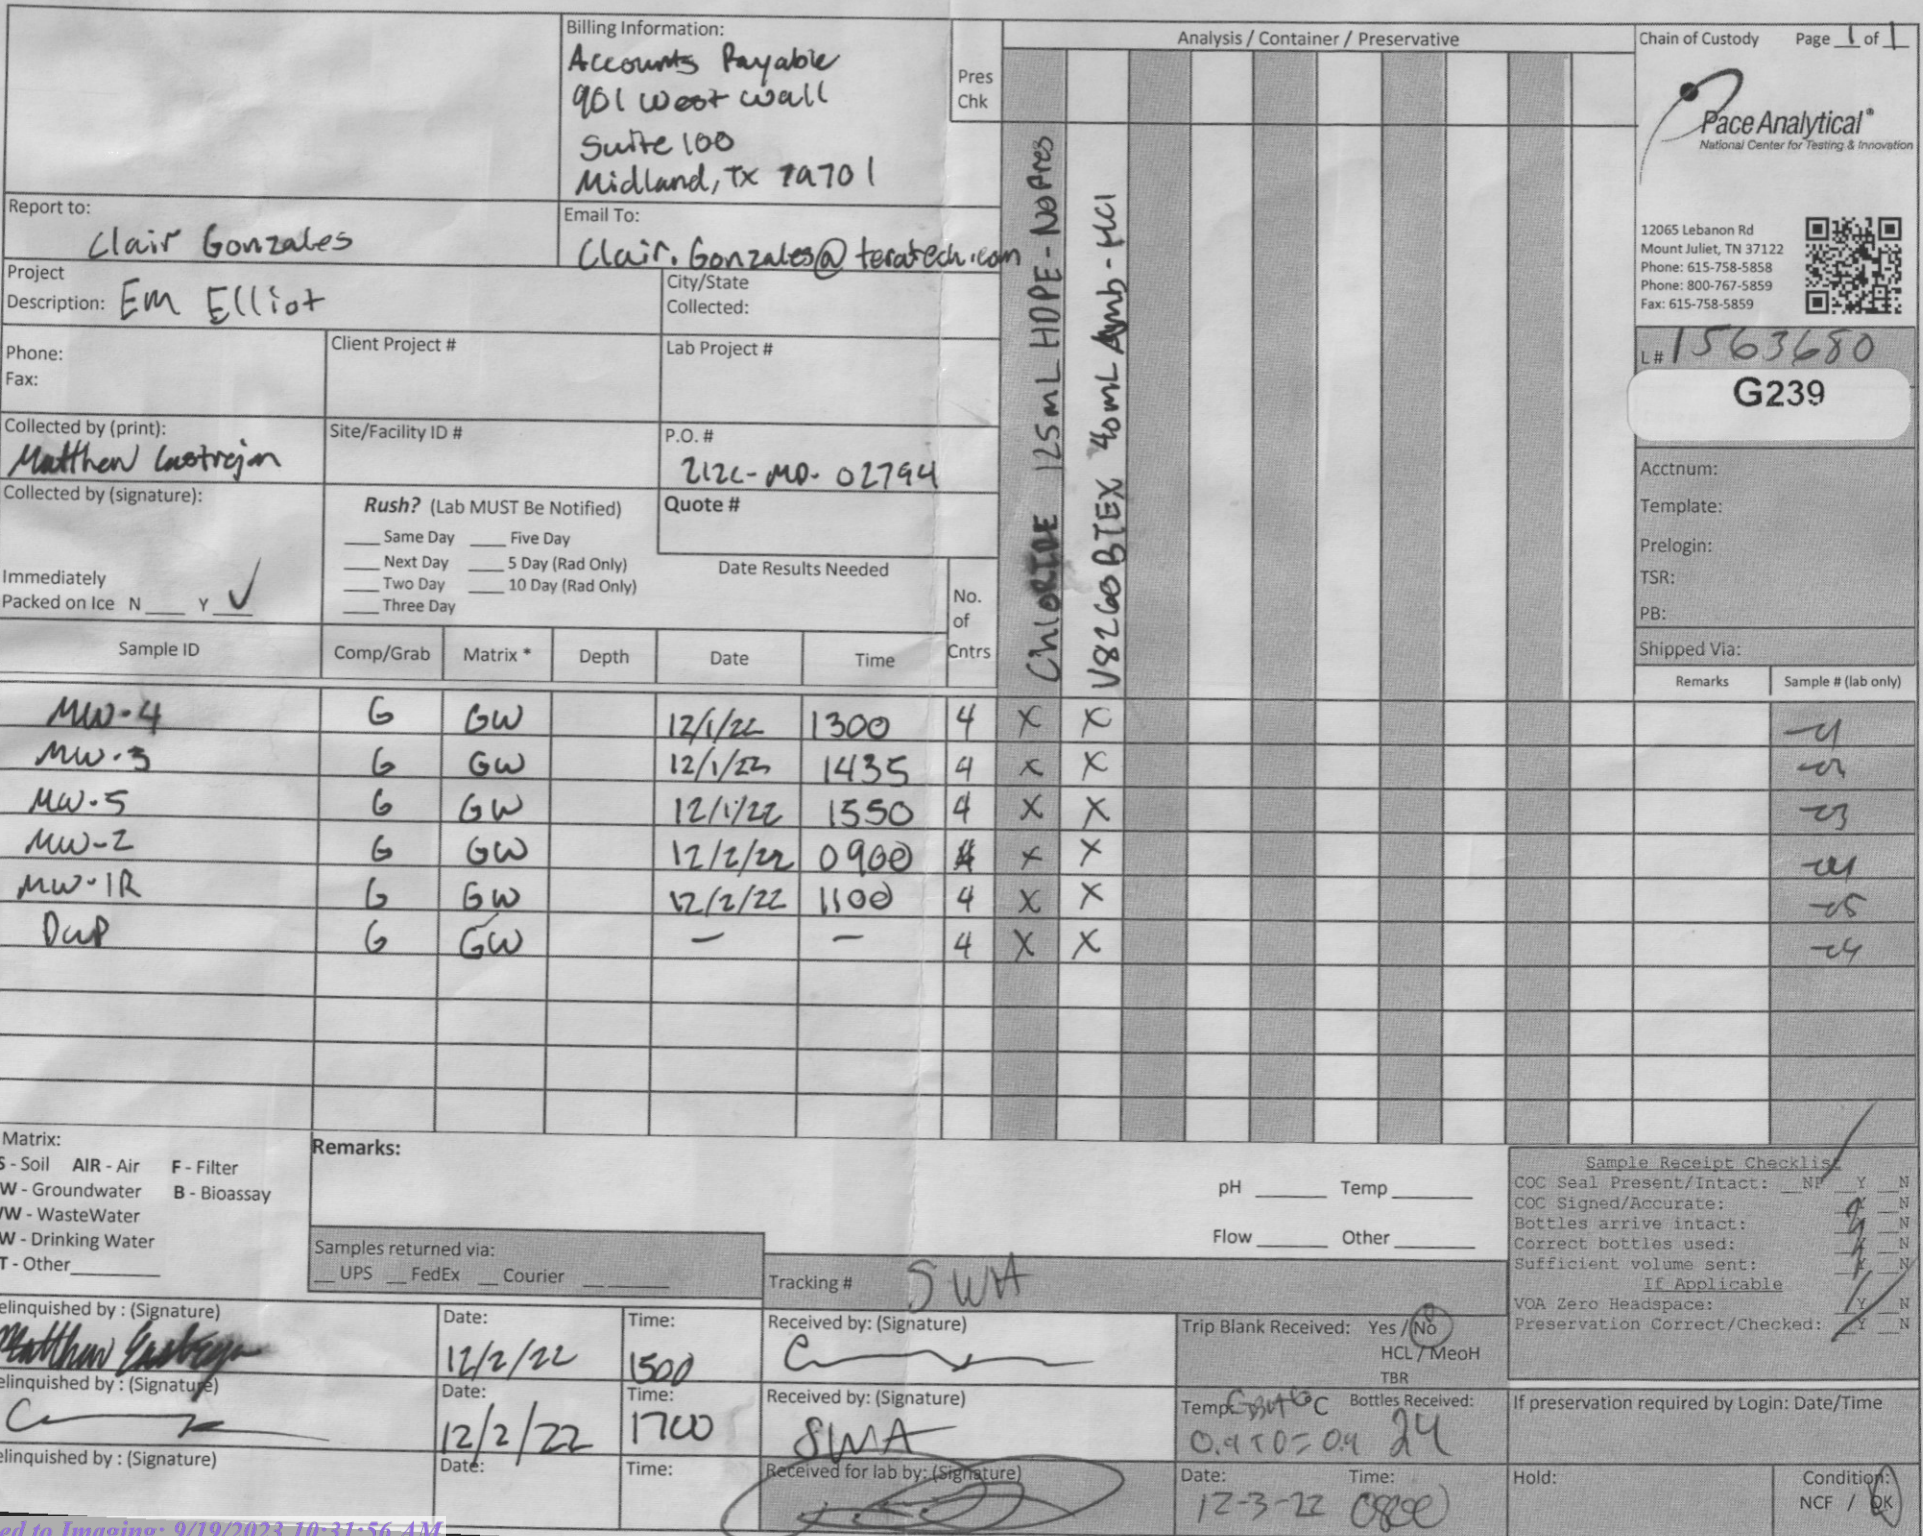 Billing Information:
Accounts Payable
901 West Wall
Suite 100
Midland, TX 79701
Pres
Chk
Analysis / Container / Preservative
Chain of Custody Page 1 of 1
Pace Analytical®
National Center for Testing & Innovation
12065 Lebanon Rd
Mount Juliet, TN 37122
Phone: 615-758-5858
Phone: 800-767-5859
Fax: 615-758-5859
Report to:
Clair Gonzales
Email To:
Clair.Gonzales@teratech.com
Project
Description: Em Elliot
City/State
Collected:
Phone:
Fax:
Client Project #
Lab Project #
L# 1563680
G239
Collected by (print):
Matthew Castrejon
Site/Facility ID #
P.O. #
212C-MD-02794
Collected by (signature):
Rush? (Lab MUST Be Notified)
___ Same Day ___ Five Day
___ Next Day ___ 5 Day (Rad Only)
___ Two Day ___ 10 Day (Rad Only)
___ Three Day
Quote #
Date Results Needed
Immediately
Packed on Ice N ___ Y ✓
No.
of
Cntrs
Chloride 125mL HDPE-NoPres
V8260BTEX 40mL Amb-HCl
Acctnum:
Template:
Prelogin:
TSR:
PB:
Shipped Via:
Sample ID Comp/Grab Matrix * Depth Date Time Remarks Sample # (lab only)
MW-4 G GW 12/1/22 1300 4 X X
MW-3 G GW 12/1/22 1435 4 X X
MW-5 G GW 12/1/22 1550 4 X X -03
MW-2 G GW 12/2/22 0900 4 X X
MW-1R G GW 12/2/22 1100 4 X X -05
DUP G GW — — 4 X X
Matrix:
S - Soil AIR - Air F - Filter
W - Groundwater B - Bioassay
WW - WasteWater
W - Drinking Water
T - Other
Remarks:
pH ___ Temp ___
Flow ___ Other ___
Samples returned via:
__ UPS __ FedEx __ Courier
Tracking # SWA
Sample Receipt Checklist
COC Seal Present/Intact: __NP Y __N
COC Signed/Accurate: Y __N
Bottles arrive intact: Y __N
Correct bottles used: Y __N
Sufficient volume sent: Y __N
If Applicable
VOA Zero Headspace: Y __N
Preservation Correct/Checked: Y __N
elinquished by : (Signature)
Matthew Castrejon
Date:
12/2/22
Time:
1500
Received by: (Signature)
Trip Blank Received: Yes / No
HCL / MeoH
TBR
elinquished by : (Signature)
Date:
12/2/22
Time:
1700
Received by: (Signature)
SWA
Temp: °C
0.9+0=0.9
Bottles Received:
24
If preservation required by Login: Date/Time
elinquished by : (Signature)
Date:
Time:
Received for lab by: (Signature)
Date:
12-3-22
Time:
Hold:
Condition:
NCF / OK
ed to Imaging: 9/19/2023 10:31:56 AM